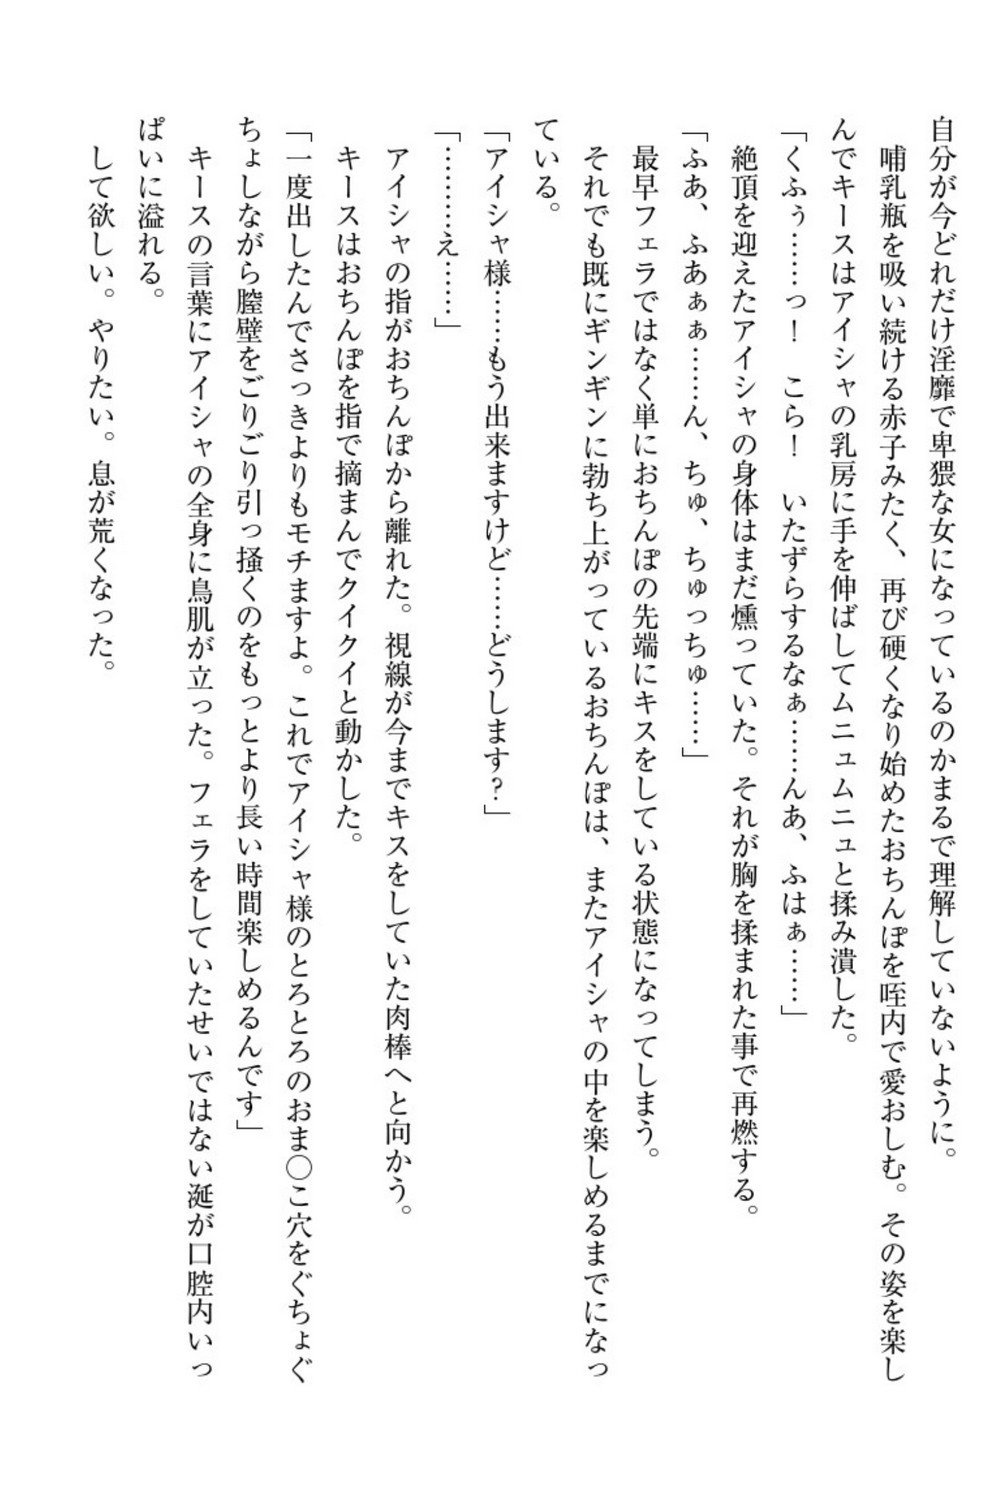 自分が今どれだけ淫靡で卑猥な女になっているのかまるで理解していないように。
哺乳瓶を吸い続ける赤子みたく、再び硬くなり始めたおちんぽを咥内で愛おしむ。その姿を楽し
んでキースはアイシャの乳房に手を伸ばしてムニュムニュと揉み潰した。
「くふぅ……っ！　こら！　いたずらするなぁ……んあ、ふはぁ……」
絶頂を迎えたアイシャの身体はまだ燻っていた。それが胸を揉まれた事で再燃する。
「ふあ、ふあぁぁ……ん、ちゅ、ちゅっちゅ……」
最早フェラではなく単におちんぽの先端にキスをしている状態になってしまう。
それでも既にギンギンに勃ち上がっているおちんぽは、またアイシャの中を楽しめるまでになっ
ている。
「アイシャ様……もう出来ますけど……どうします？」
「………え……」
アイシャの指がおちんぽから離れた。視線が今までキスをしていた肉棒へと向かう。
キースはおちんぽを指で摘まんでクイクイと動かした。
「一度出したんでさっきよりもモチますよ。これでアイシャ様のとろとろのおま〇こ穴をぐちょぐ
ちょしながら膣壁をごりごり引っ掻くのをもっとより長い時間楽しめるんです」
キースの言葉にアイシャの全身に鳥肌が立った。フェラをしていたせいではない涎が口腔内いっ
ぱいに溢れる。
して欲しい。やりたい。息が荒くなった。